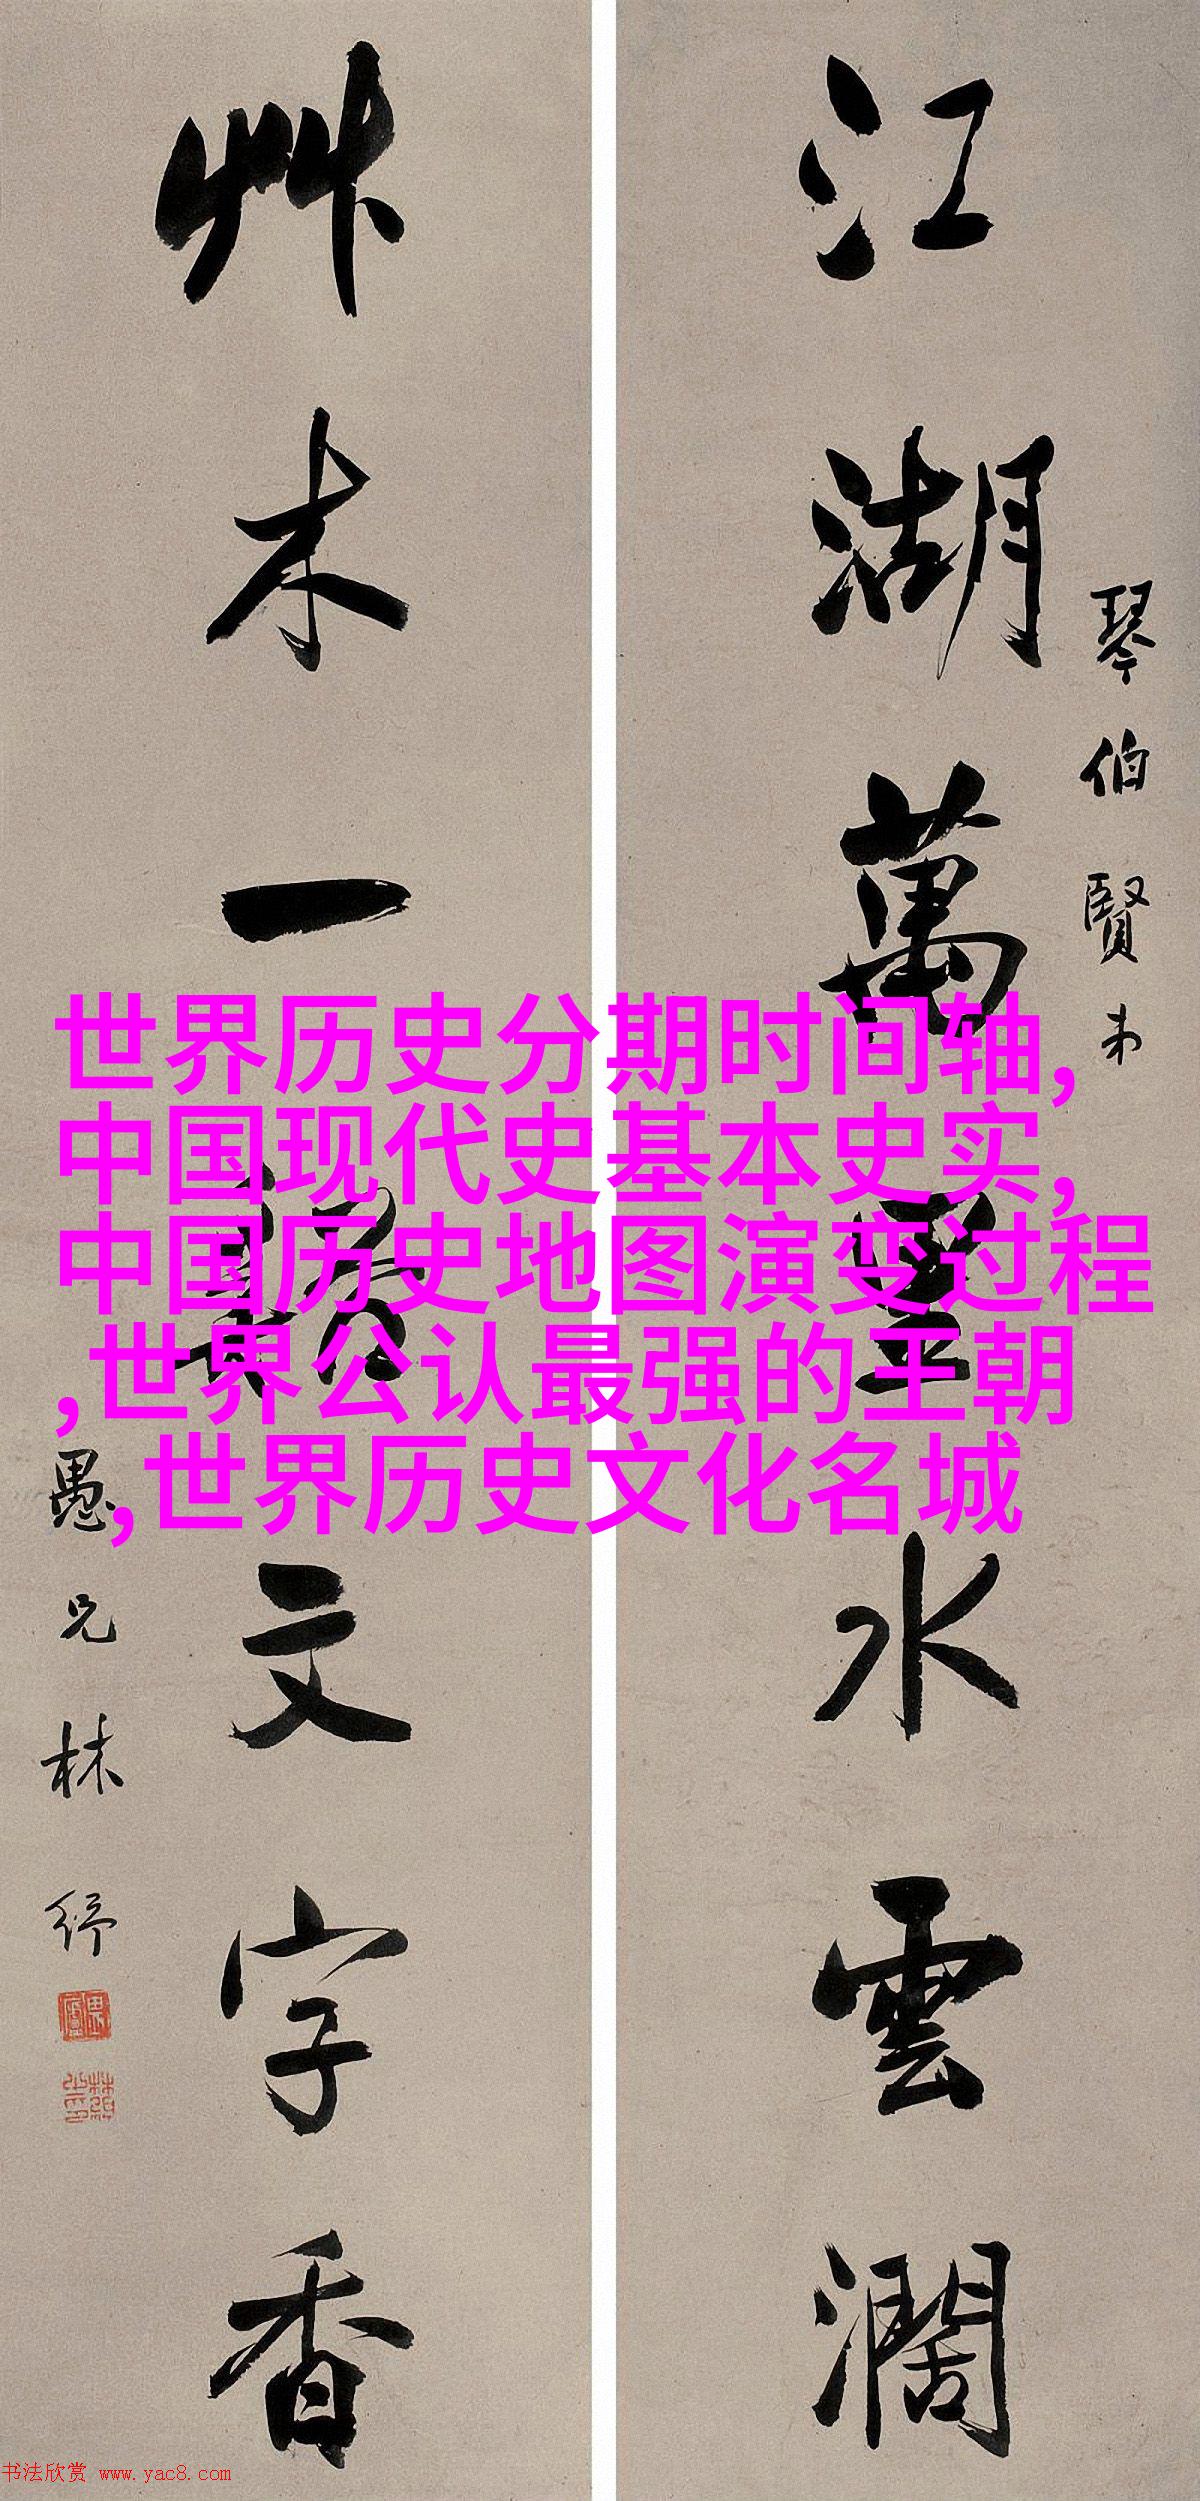 江湖萬里水雲濶
琴伯賢弟
艸木一谿文字香
愚兄林紓
畏廬
世界历史分期时间轴,
中国现代史基本史实,
中国历史地图演变过程
,世界公认最强的王朝
,世界历史文化名城
书法欣赏 www.yac8.com